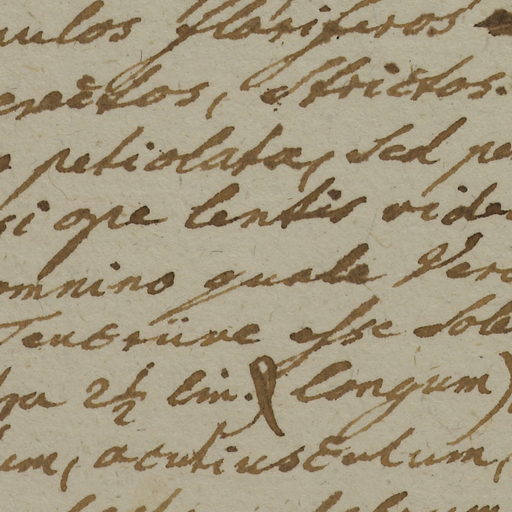 aulos floriferos
erectos, strictos.
petiolata, sed pe
si ope lentis vide
omnino quale Vero
Teucriive esse sole
tra 2½ lin. longum)
um, acutiusculum,